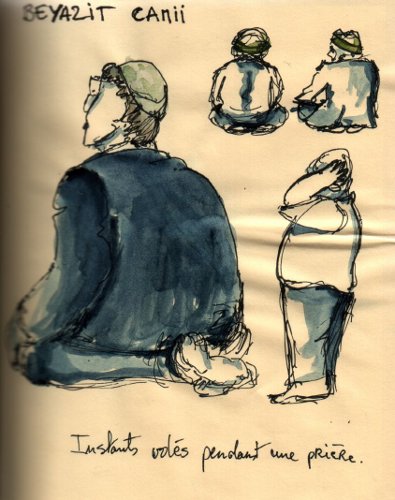 BEYAZIT CAMii
Instants volés pendant une prière.